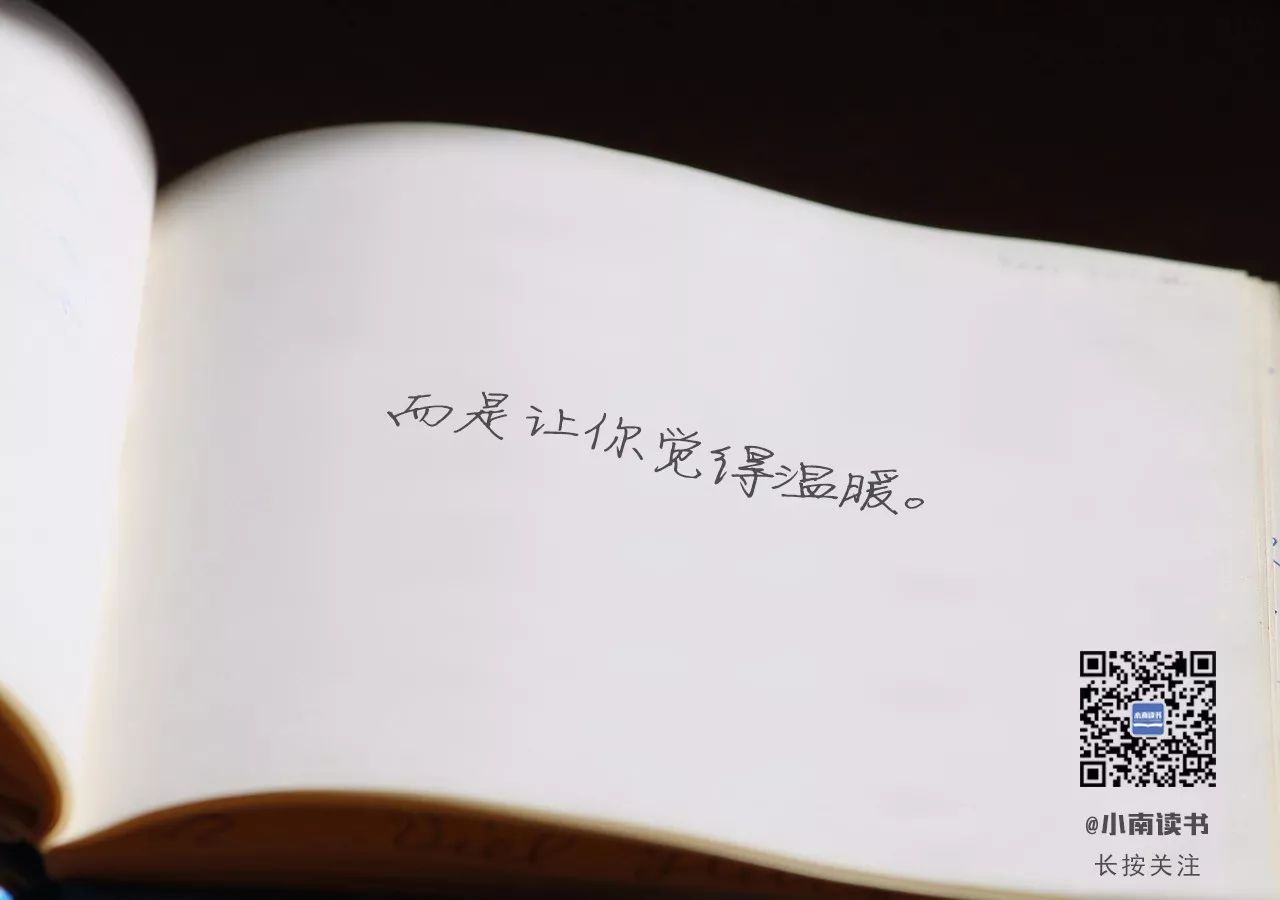 而是让你觉得温暖。
小南读书
@小南读书
长按关注